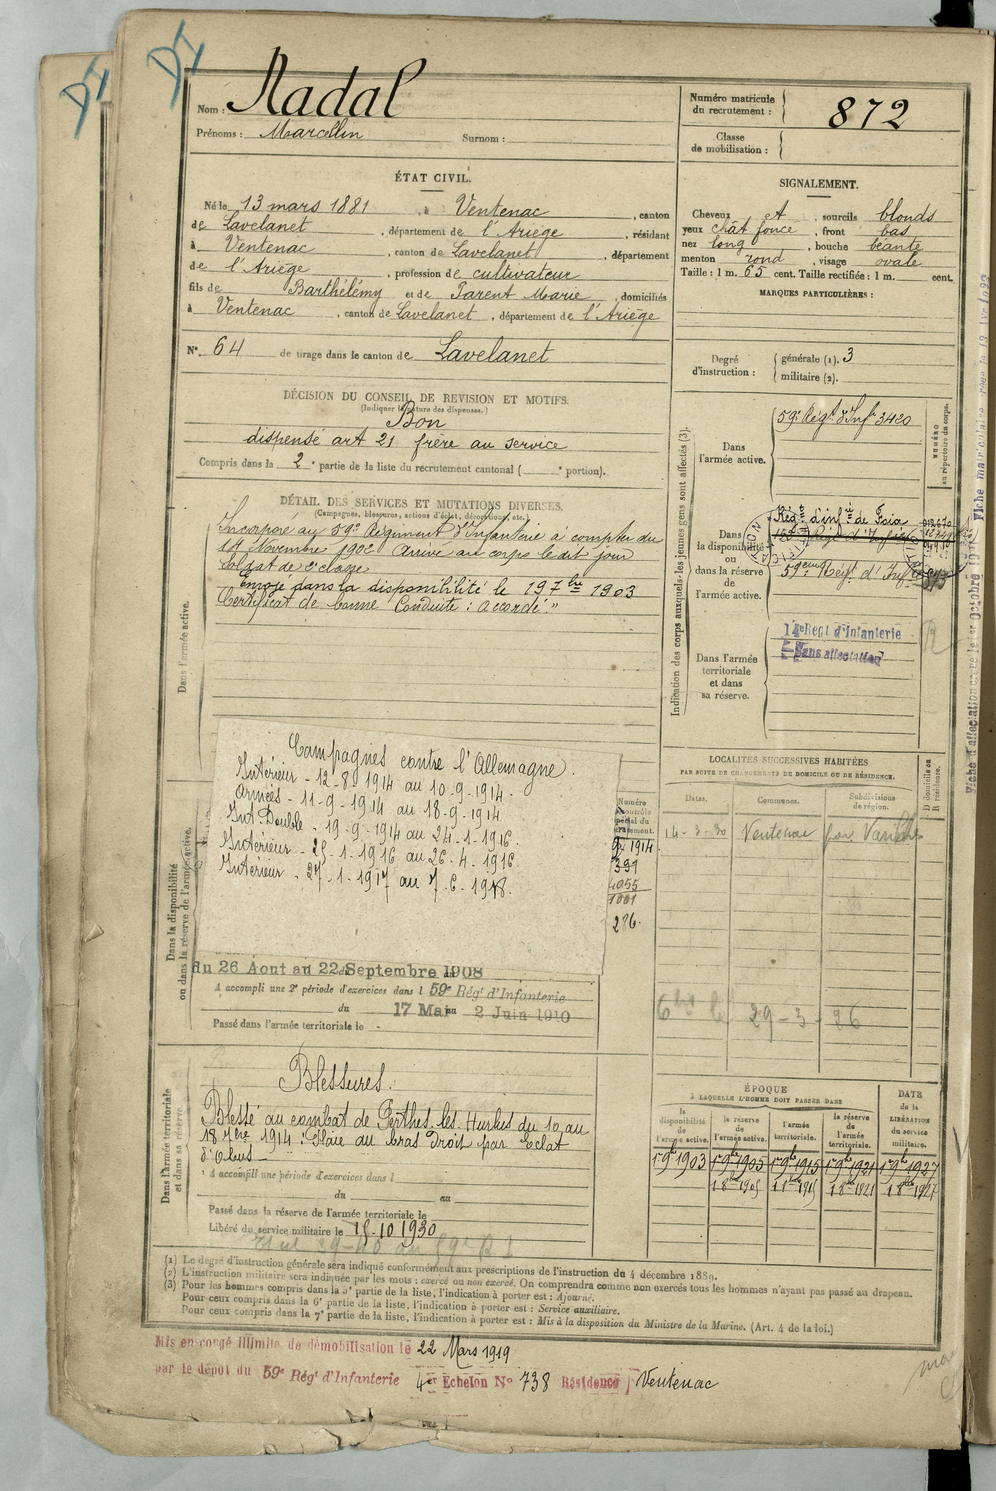 Nom : Nadal
Prénoms : Marcellin Surnom :
Numéro matricule du recrutement : 872
Classe de mobilisation :
ÉTAT CIVIL.
Né le 13 mars 1881, à Ventenac, canton
de Lavelanet, département de l'Ariège, résidant
à Ventenac, canton de Lavelanet, département
de l'Ariège, profession de cultivateur
fils de Barthélémy et de Parent Marie, domiciliés
à Ventenac, canton de Lavelanet, département de l'Ariège
N° 64 de tirage dans le canton de Lavelanet
SIGNALEMENT.
Cheveux et, sourcils blonds
yeux chât foncé, front bas
nez long, bouche béante
menton rond, visage ovale
Taille : 1 m. 65 cent. Taille rectifiée : 1 m. cent.
MARQUES PARTICULIÈRES :
Degré d'instruction : générale (1). 3
militaire (2).
DÉCISION DU CONSEIL DE REVISION ET MOTIFS.
(Indiquer la nature des dispenses.)
Bon
dispensé art 21 frère au service
Compris dans la 2e partie de la liste du recrutement cantonal ( e portion).
DÉTAIL DES SERVICES ET MUTATIONS DIVERSES.
(Campagnes, blessures, actions d'éclat, décorations, etc.)
Dans l'armée active.
Incorporé au 59e Régiment d'Infanterie à compter du
14 Novembre 1902 Arrivé au corps le dit jour
Soldat de 2e classe
Envoyé dans la disponibilité le 19 7bre 1903
Certificat de bonne Conduite : "Accordé"
Indication des corps auxquels les jeunes gens sont affectés (3).
NUMÉRO au répertoire du corps.
Dans l'armée active.
59e Régt d'Infie 3420
Dans la disponibilité ou dans la réserve de l'armée active.
Régt d'infie de Foix
59eme Régt d'Infie
Dans l'armée territoriale et dans sa réserve.
14e Regt d'Infanterie
Sans affectation
Dans la disponibilité ou dans la réserve de l'armée active.
Campagnes contre l'Allemagne.
Intérieur - 12-8-1914 au 10-9-1914.
Armées - 11-9-1914 au 18-9-1914
Int. Double - 19-9-1914 au 24-1-1916.
Intérieur - 25-1-1916 au 26-4-1916.
Intérieur - 27-1-1917 au 7-6-1918.
9bre 1914
391
4055
1001
276.
du 26 Aout au 22 Septembre 1908
A accompli une 2e période d'exercices dans l 59e Rég' d'Infanterie
du 17 Mai au 2 Juin 1910
Passé dans l'armée territoriale le
LOCALITÉS SUCCESSIVES HABITÉES
PAR SUITE DE CHANGEMENTS DE DOMICILE OU DE RÉSIDENCE.
Dates. Communes. Subdivisions de région. D domicile ou R résidence.
14-3-30 Ventenac
29-3-26
Dans l'armée territoriale et dans sa réserve.
Blessures.
Blessé au combat de Perthes-les-Hurlus du 10 au
18 7bre 1914 : Plaie au bras Droit par Eclat
d'Obus
A accompli une période d'exercices dans l
du au
Passé dans la réserve de l'armée territoriale le
Libéré du service militaire le 15-10 1930
ÉPOQUE
A LAQUELLE L'HOMME DOIT PASSER DANS
la disponibilité de l'armée active. la réserve de l'armée active. l'armée territoriale. la réserve de l'armée territoriale. DATE de la LIBÉRATION du service militaire.
1er 9bre 1903 1er 9bre 1905 1er 9bre 1915 1er 9bre 1921 1er 9bre 1927
(1) Le degré d'instruction générale sera indiqué conformément aux prescriptions de l'instruction du 4 décembre 1889.
(2) L'instruction militaire sera indiquée par les mots : exercé ou non exercé. On comprendra comme non exercés tous les hommes n'ayant pas passé au drapeau.
(3) Pour les hommes compris dans la 5e partie de la liste, l'indication à porter est : Ajourné.
Pour ceux compris dans la 6e partie de la liste, l'indication à porter est : Service auxiliaire.
Pour ceux compris dans la 7e partie de la liste, l'indication à porter est : Mis à la disposition du Ministre de la Marine. (Art. 4 de la loi.)
Mis en congé illimité de démobilisation le 22 Mars 1919
par le dépôt du 59e Rég' d'Infanterie 4er Echelon N° 738 Résidence Ventenac